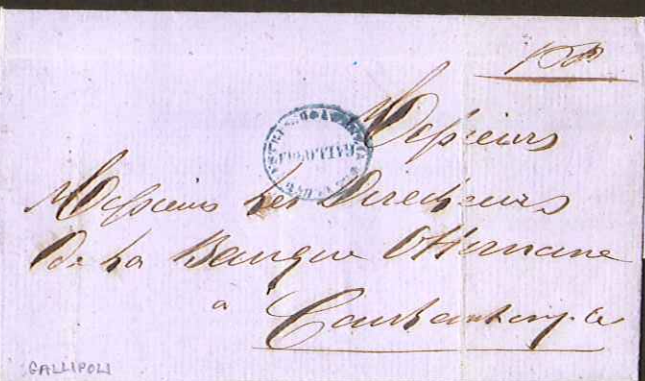 Messieurs
Messieurs les Directeurs
de la Banque Ottomane
a
Constantinople
GALLIPOLI
GALLIPOLI